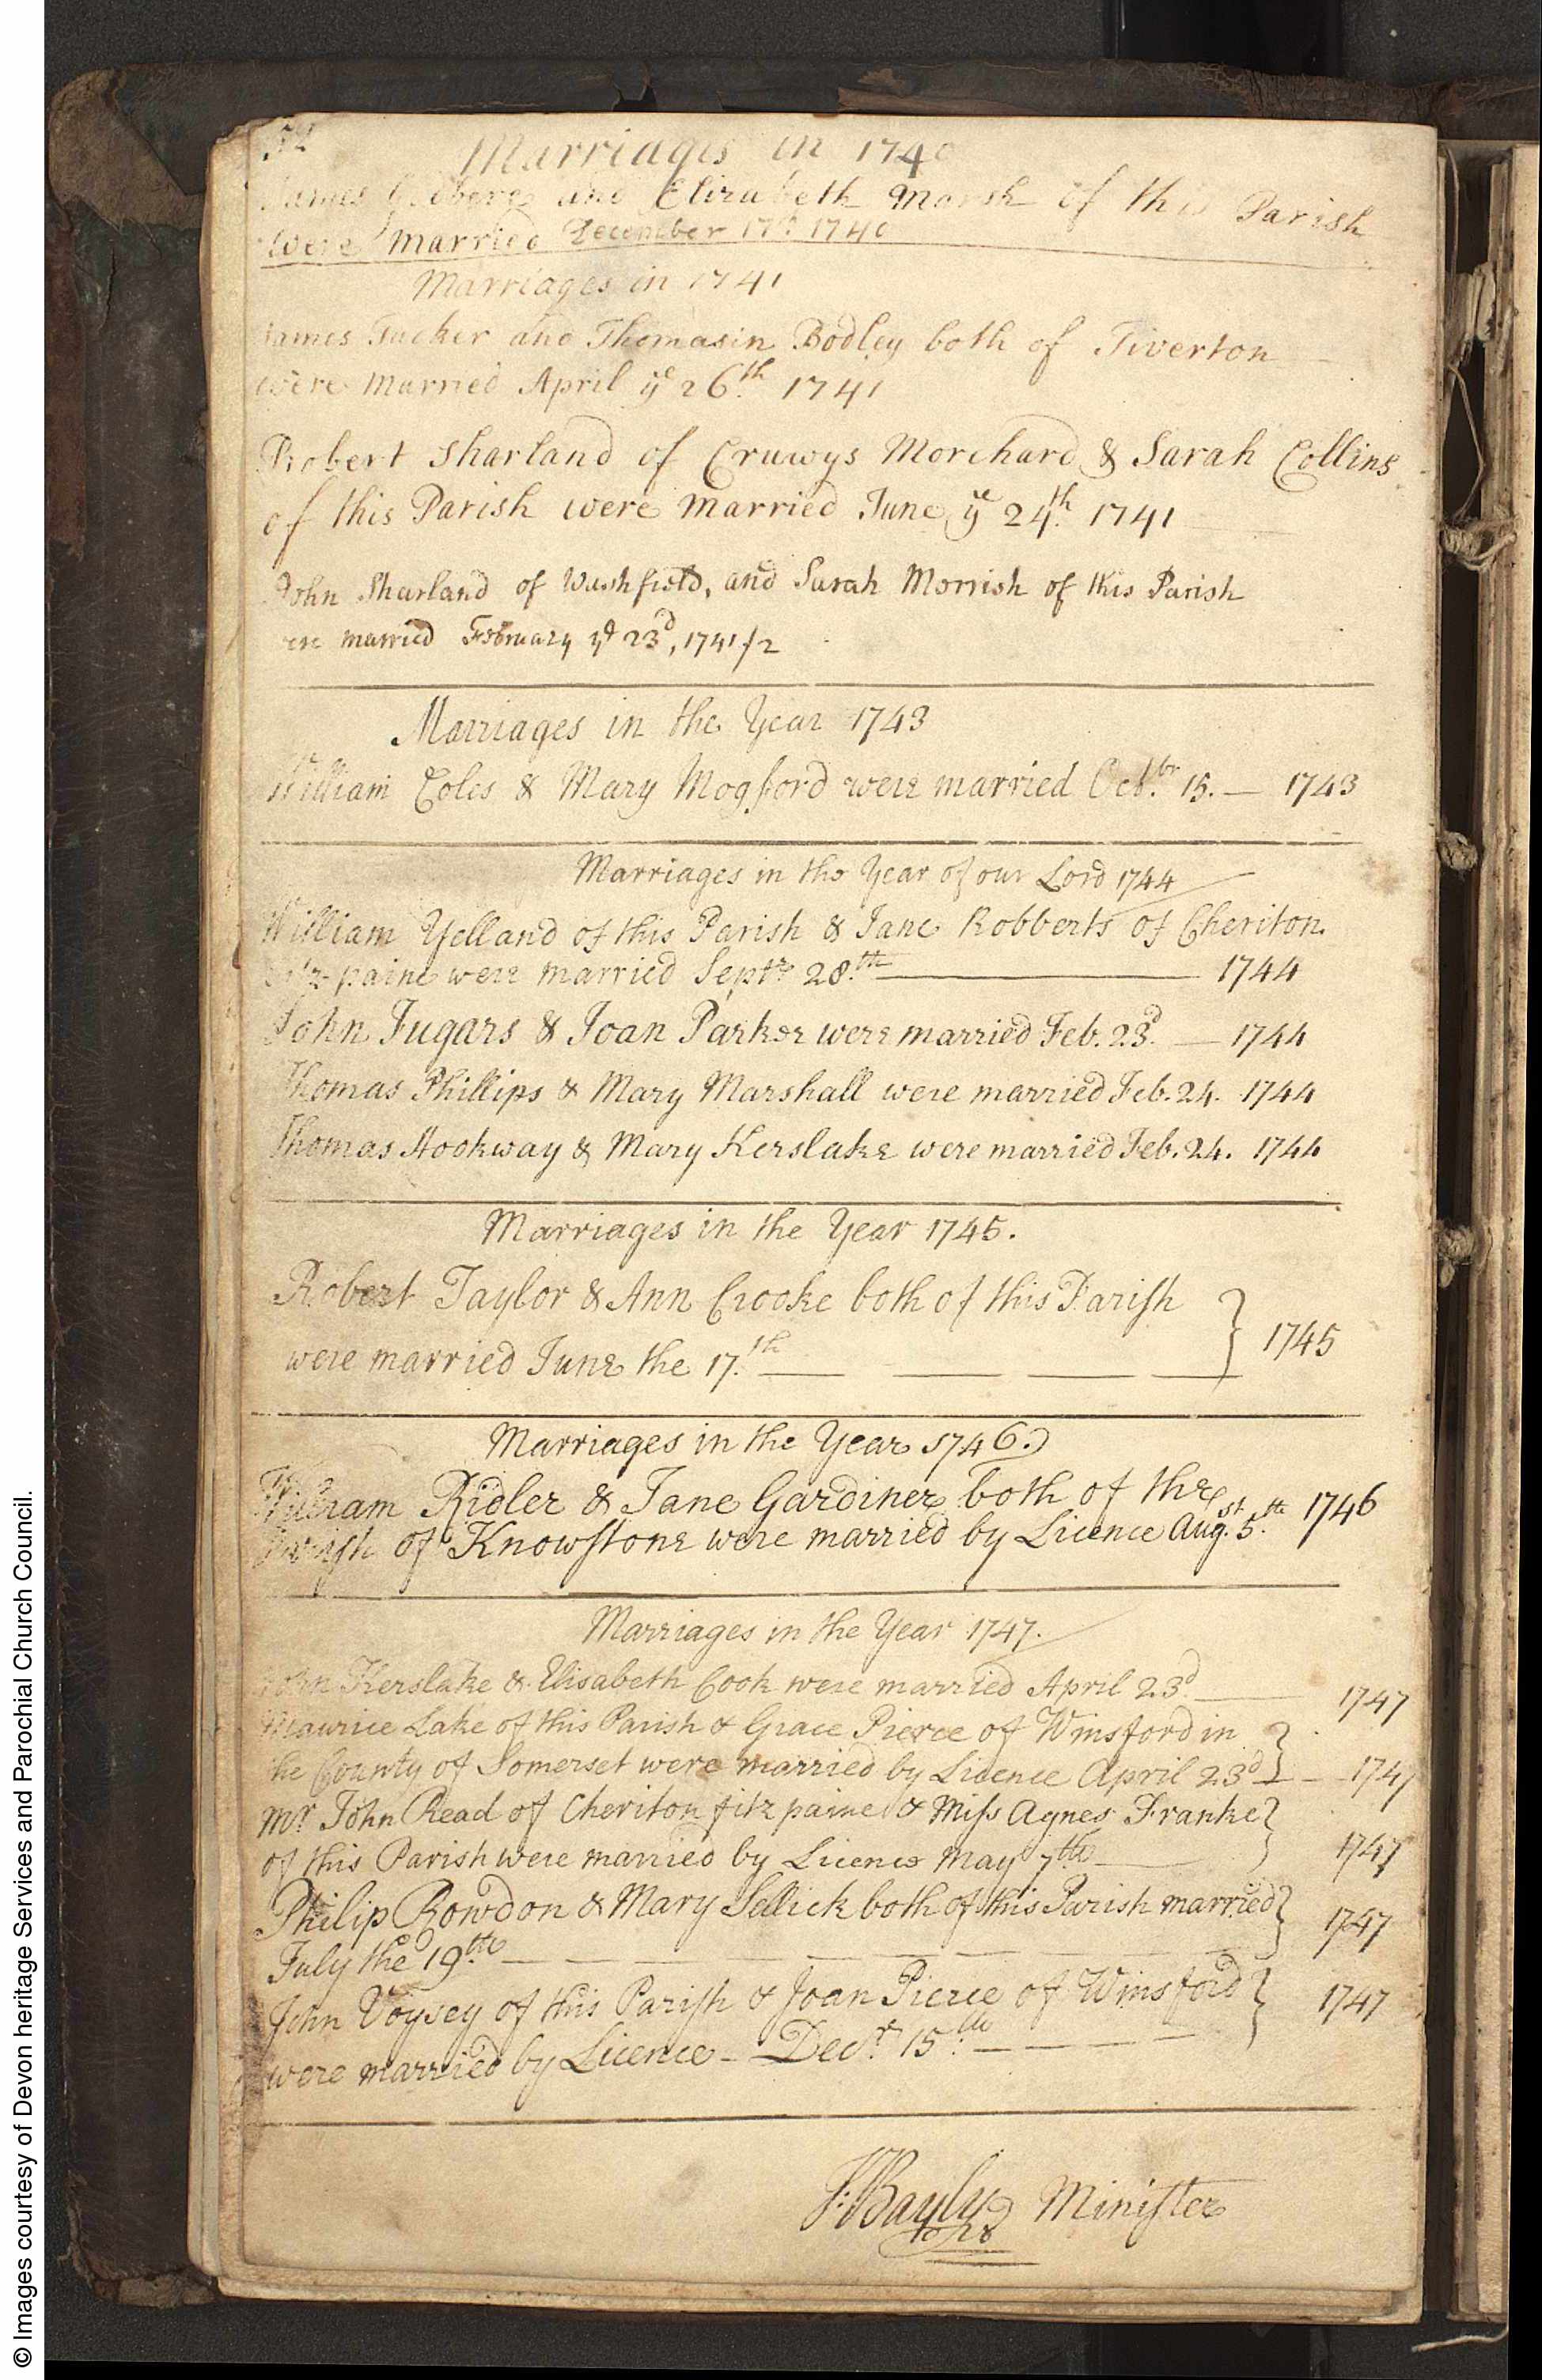 Marriages in 1740
James and Elizabeth Marsh of this Parish
were married December 17th 1740
Marriages in 1741
James Tucker and Thomasin Bodley both of Tiverton
were married April ye 26th 1741
Robert Sharland of Cruwys Morchard & Sarah Collins
of this Parish were married June ye 24th 1741
John Sharland of Washfield, and Sarah Morrish of this Parish
were married February ye 23d, 1741/2
Marriages in the Year 1743
William Coles & Mary Mogford were married Octbr 15. — 1743
Marriages in the Year of our Lord 1744
William Yelland of this Parish & Jane Robberts of Cheriton
fitz-paine were married Septr 28.th — 1744
John Fugars & Joan Parker were married Feb. 23d. — 1744
Thomas Phillips & Mary Marshall were married Feb. 24. 1744
Thomas Hookway & Mary Kerslake were married Feb. 24. 1744
Marriages in the Year 1745.
Robert Taylor & Ann Crooke both of this Parish
were married June the 17.th — 1745
Marriages in the Year 1746.
William Ridler & Jane Gardiner both of the
Parish of Knowstone were married by Licence Augst. 5.th 1746
Marriages in the Year 1747.
John Kerslake & Elisabeth Cook were married April 23d — 1747
Maurice Lake of this Parish & Grace Pierce of Winsford in
the County of Somerset were married by Licence April 23d — 1747
Mr. John Read of Cheriton fitz paine & Miss Agnes Franke
of this Parish were married by Licence May 7th — 1747
Philip Rowdon & Mary Sellick both of this Parish married
July the 19.th — 1747
John Voysey of this Parish & Joan Pierce of Winsford
were married by Licence — Decr. 15.th — 1747
J: Bayly Minister
© Images courtesy of Devon heritage Services and Parochial Church Council.